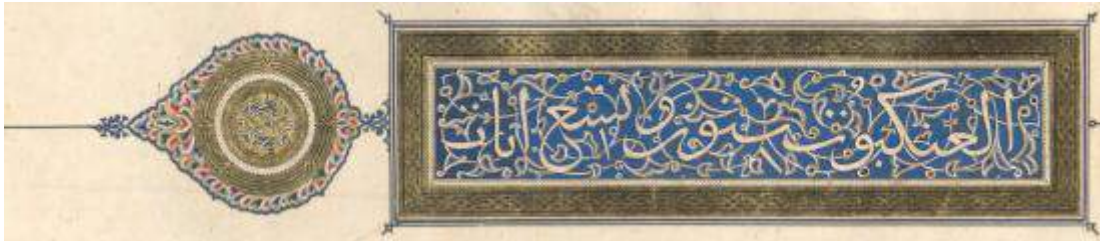 العنكبوت ستون وتسع ايات